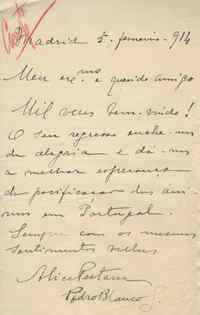 Madrid 5-fevereiro-914
Meu exmo. e querido amigo
Mil vezes bem-vindo!
O seu regresso enche-nos
de alegria e dá-nos
a melhor esperança
de pacificação dos âni-
mos em Portugal.
Sempre com os mesmos
sentimentos velhos
Alice Pestana
Pedro Blanco